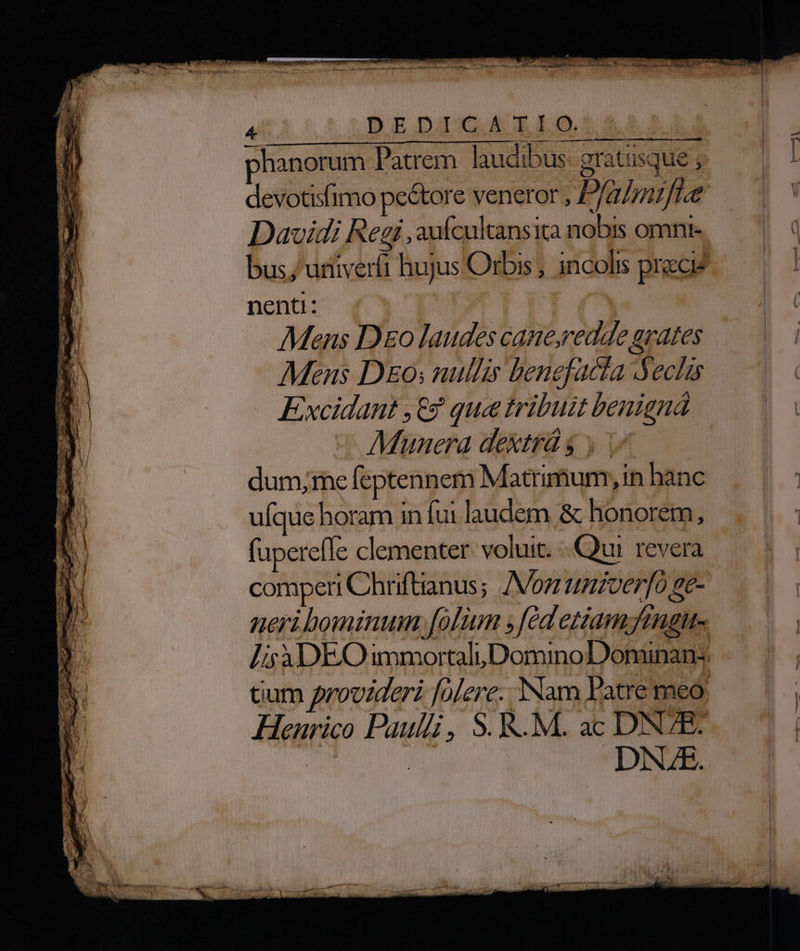 4 DEDICATIO.
phanorum Patrem laudibus gratiisque ;
devotisſimo pectore veneror , Pſalmiſtæ
Davidi Regi , auſcultans ita nobis omni-
bus, univerſi hujus Orbis , incolis præci-
nenti:
Mens DEO laudes cane, redde grates
Mens DEO; nullis benefacta Seclis
Excidant , & quæ tribuit benignâ
Munera dextrâ ;
dum, me ſeptennem Matrimum, in hanc
uſque horam in ſui laudem & honorem,
ſupereſſe clementer voluit. Qui revera
comperi Chriſtianus; Non univerſo ge-
neri hominum ſolùm , ſed etiam ſingu-
lis à DEO immortali, Domino Dominan-
tium provideri ſolere. Nam Patre meo
Henrico Paulli , S. R. M. ac DNÆ.
DNÆ.